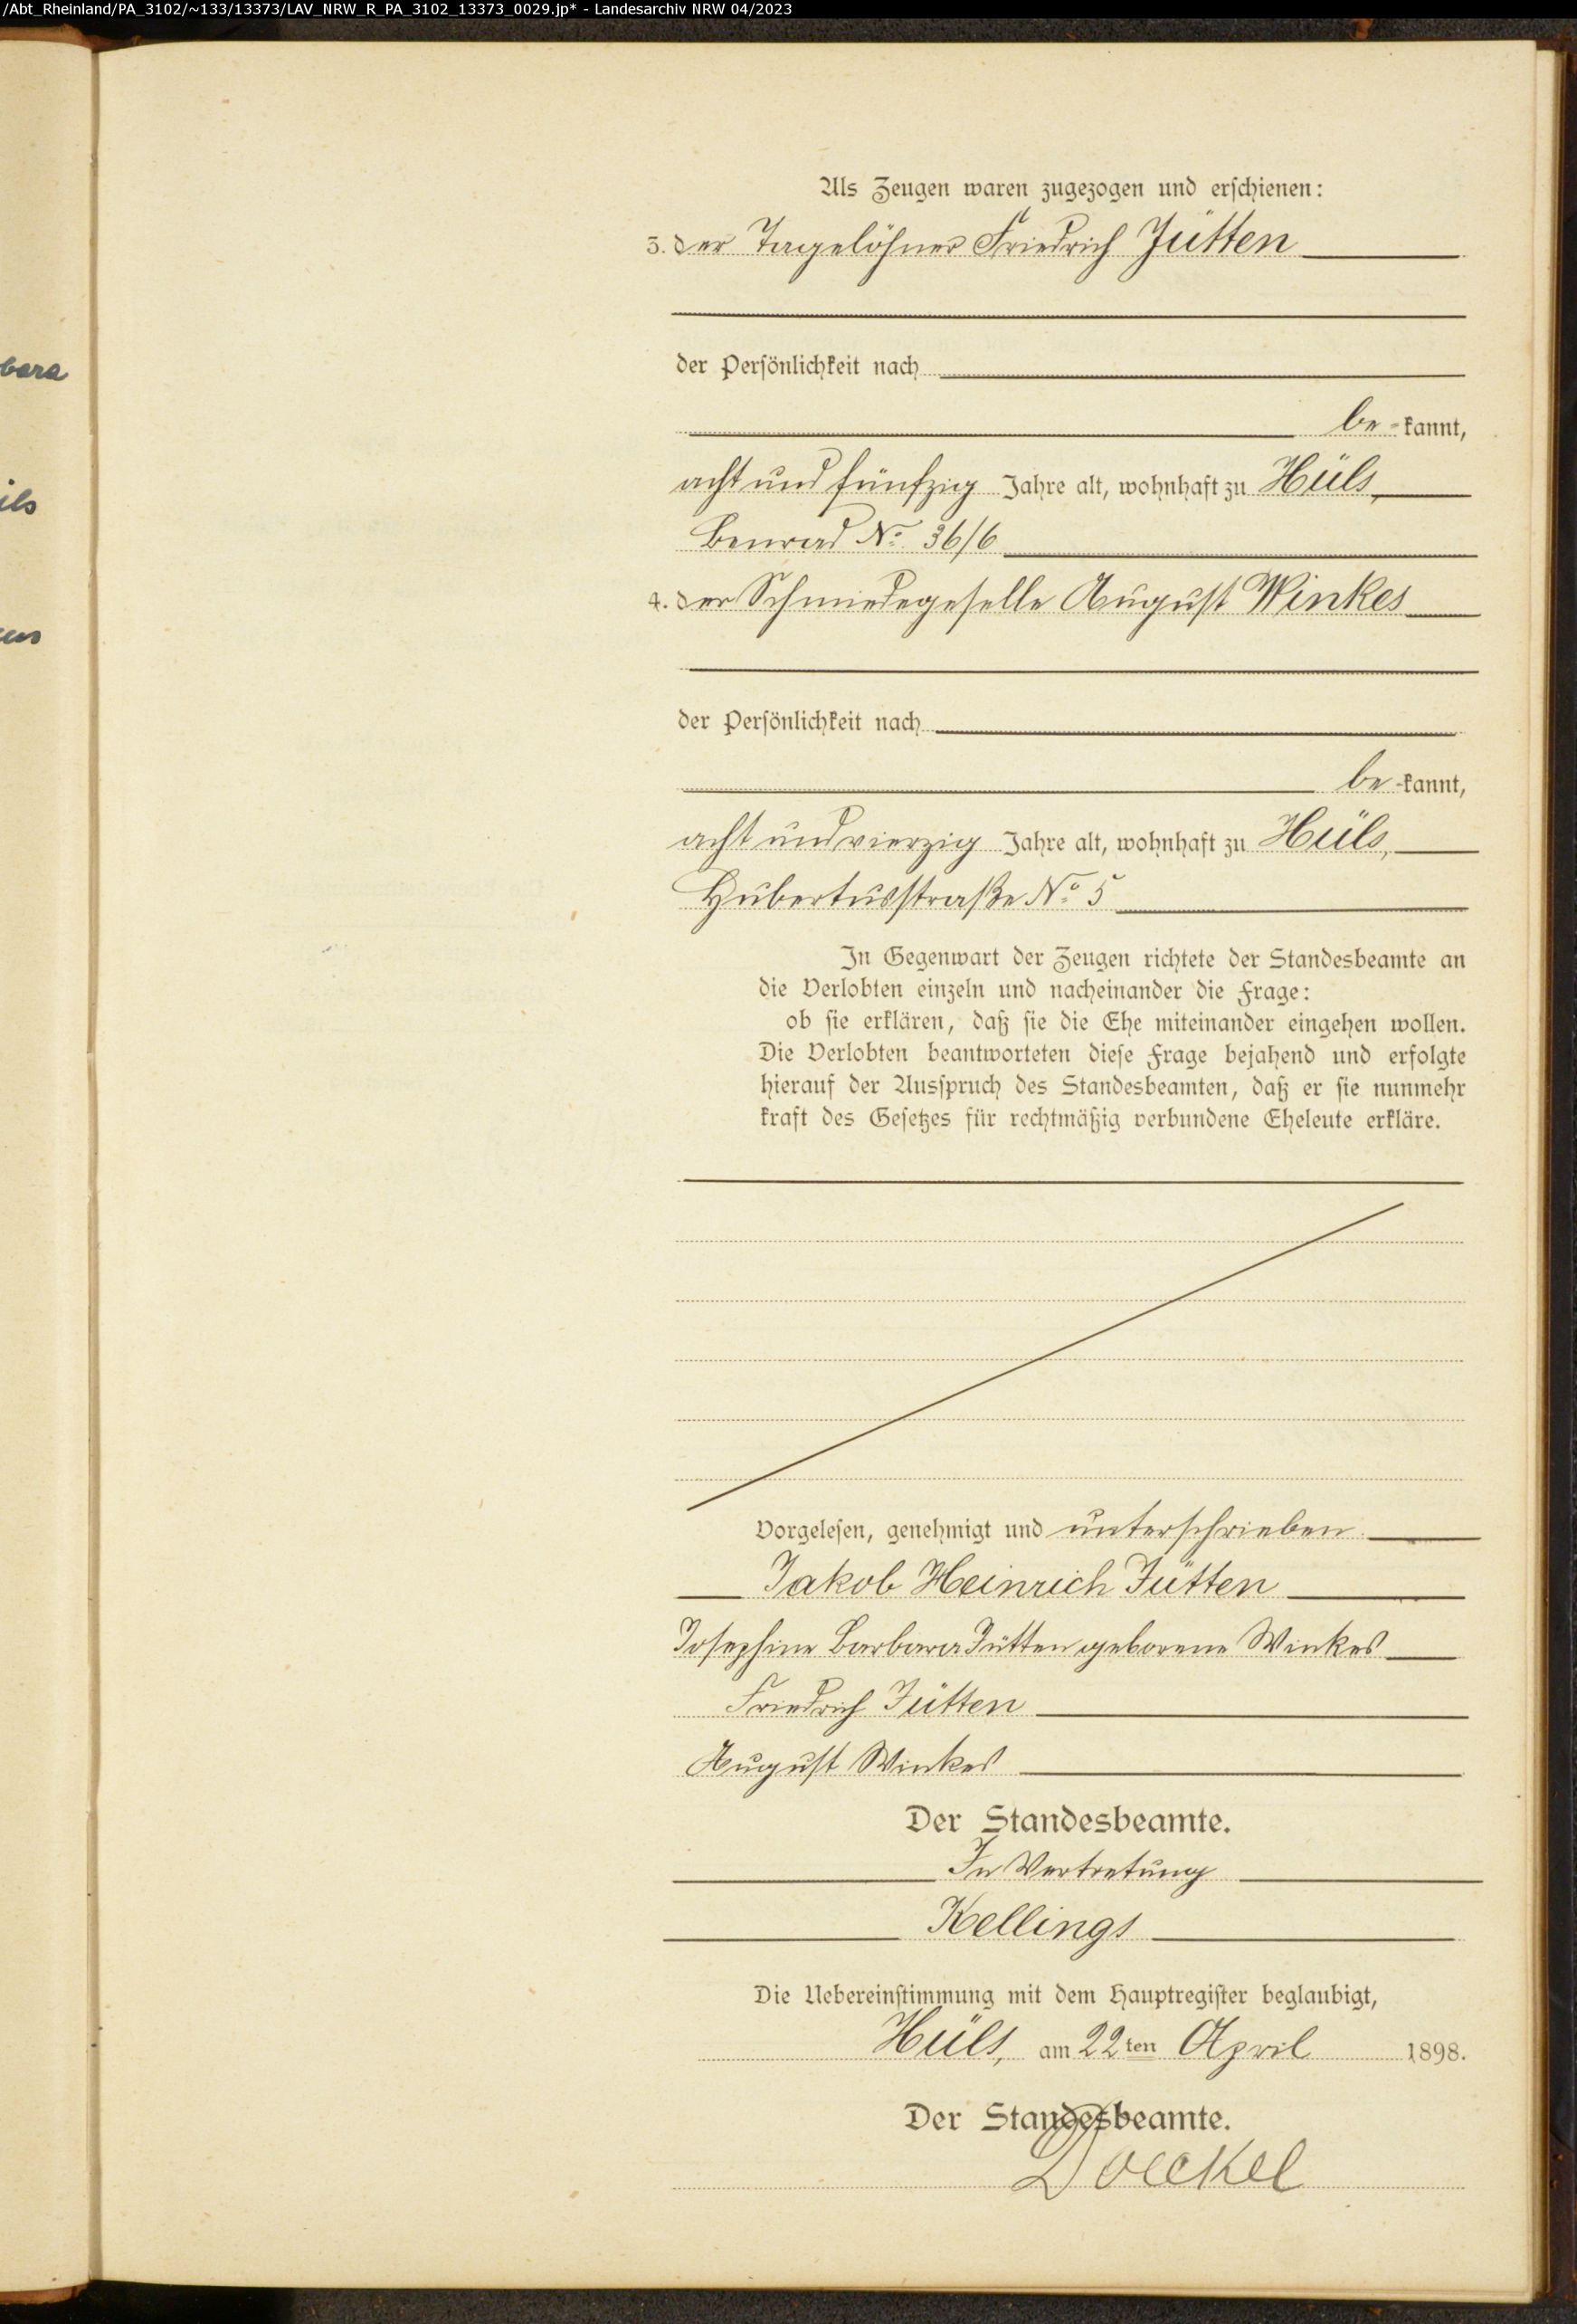 /Abt_Rheinland/PA_3102/~133/13373/LAV_NRW_R_PA_3102_13373_0029.jp* - Landesarchiv NRW 04/2023
Als Zeugen waren zugezogen und erschienen:
3. der Tagelöhner Friedrich Jütten
der Persönlichkeit nach
be-kannt,
acht und fünfzig Jahre alt, wohnhaft zu Hüls,
Benrad No. 36/6
4. der Schmiedegeselle August Winkes
der Persönlichkeit nach
be-kannt,
acht und vierzig Jahre alt, wohnhaft zu Hüls,
Hubertusstraße No. 5
In Gegenwart der Zeugen richtete der Standesbeamte an
die Verlobten einzeln und nacheinander die Frage:
ob sie erklären, daß sie die Ehe miteinander eingehen wollen.
Die Verlobten beantworteten diese Frage bejahend und erfolgte
hierauf der Ausspruch des Standesbeamten, daß er sie nunmehr
kraft des Gesetzes für rechtmäßig verbundene Eheleute erkläre.
Vorgelesen, genehmigt und unterschrieben.
Jakob Heinrich Jütten
Josephine Barbara Jütten geborene Winkes
Friedrich Jütten
August Winkes
Der Standesbeamte.
In Vertretung
Kellings
Die Uebereinstimmung mit dem Hauptregister beglaubigt,
Hüls, am 22ten April 1898.
Der Standesbeamte.